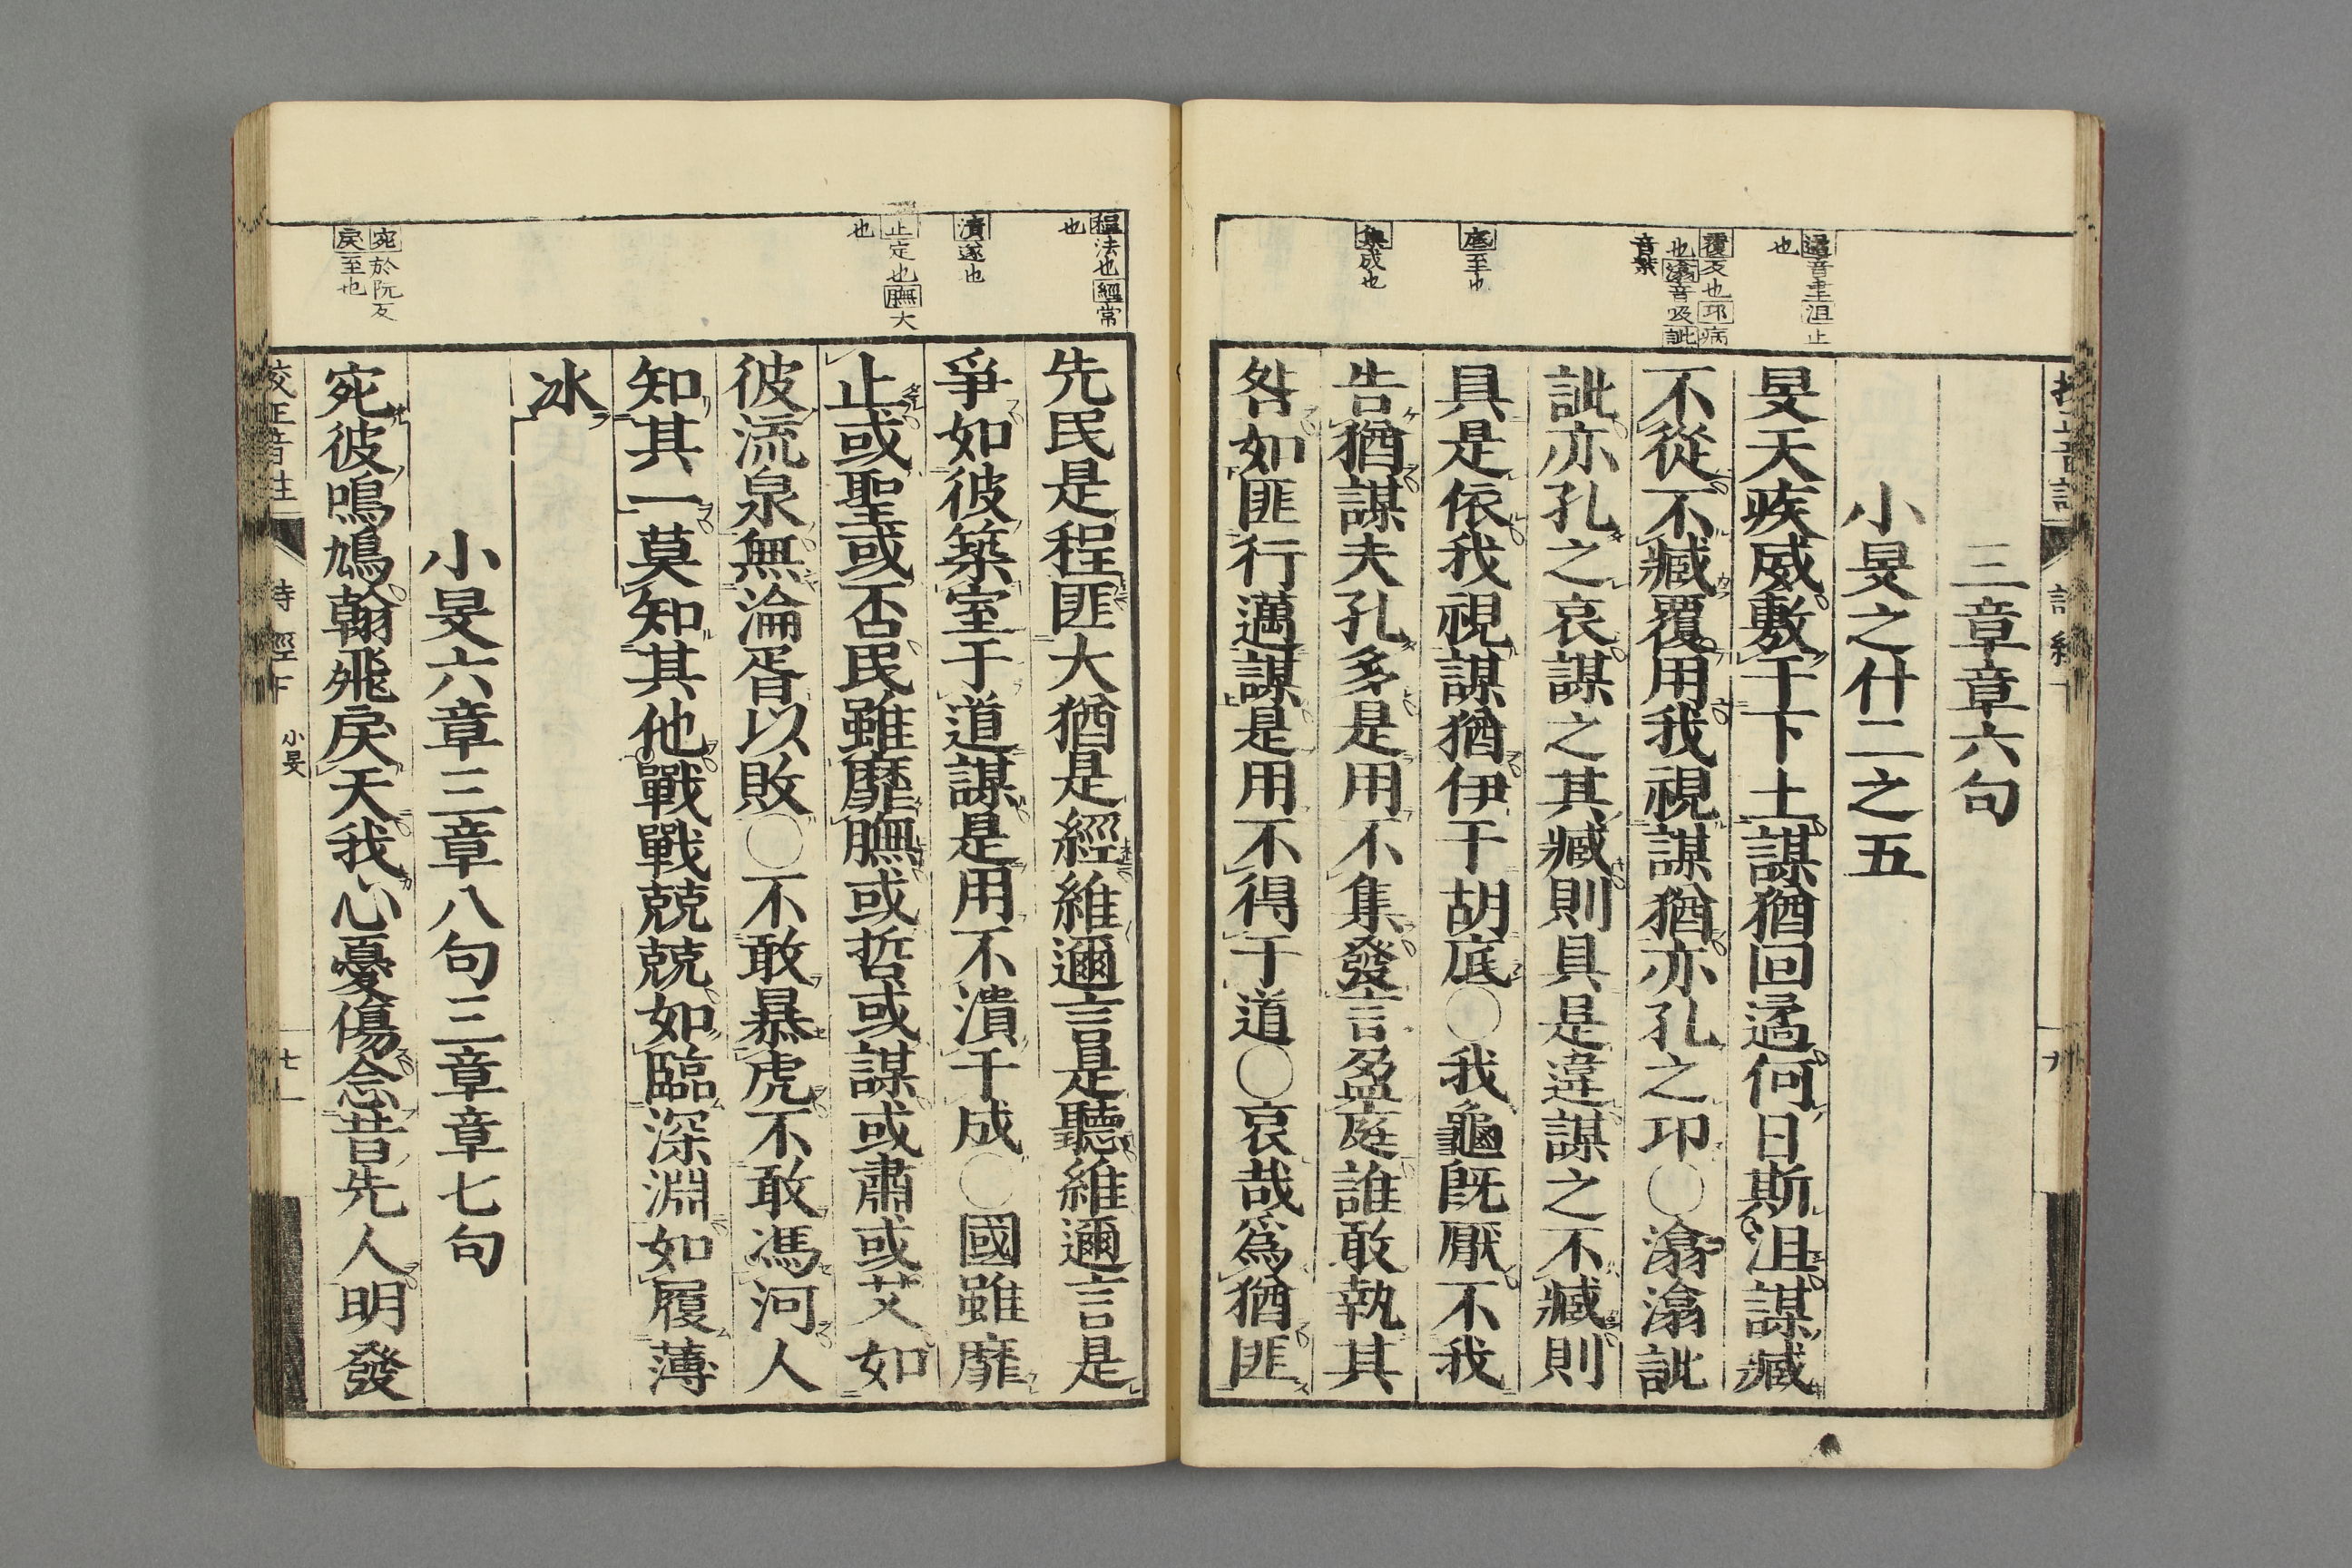 三章章六句
小旻之什二之五
旻天疾威敷于下土謀猶回遹何日斯沮謀臧
不從不臧覆用我視謀猶亦孔之邛○潝潝訿
訿亦孔之哀謀之其臧則具是違謀之不臧則
具是依我視謀猶伊于胡底○我龜既厭不我
告猶謀夫孔多是用不集發言盈庭誰敢執其
咎如匪行邁謀是用不得于道○哀哉爲猶匪
遹音聿沮止
也
覆反也邛病
也潝音吸訿
音紫
底至也
集成也
先民是程匪大猶是經維邇言是聽維邇言是
爭如彼築室于道謀是用不潰于成○國雖靡
止或聖或否民雖靡膴或哲或謀或肅或艾如
彼流泉無淪胥以敗○不敢暴虎不敢馮河人
知其一莫知其他戰戰兢兢如臨深淵如履薄
冰
小旻六章三章八句三章章七句
宛彼鳴鳩翰飛戾天我心憂傷念昔先人明發
程法也經常
也
潰遂也
止定也膴大
也
宛於阮反
戾至也
校正音註 詩經下 小旻